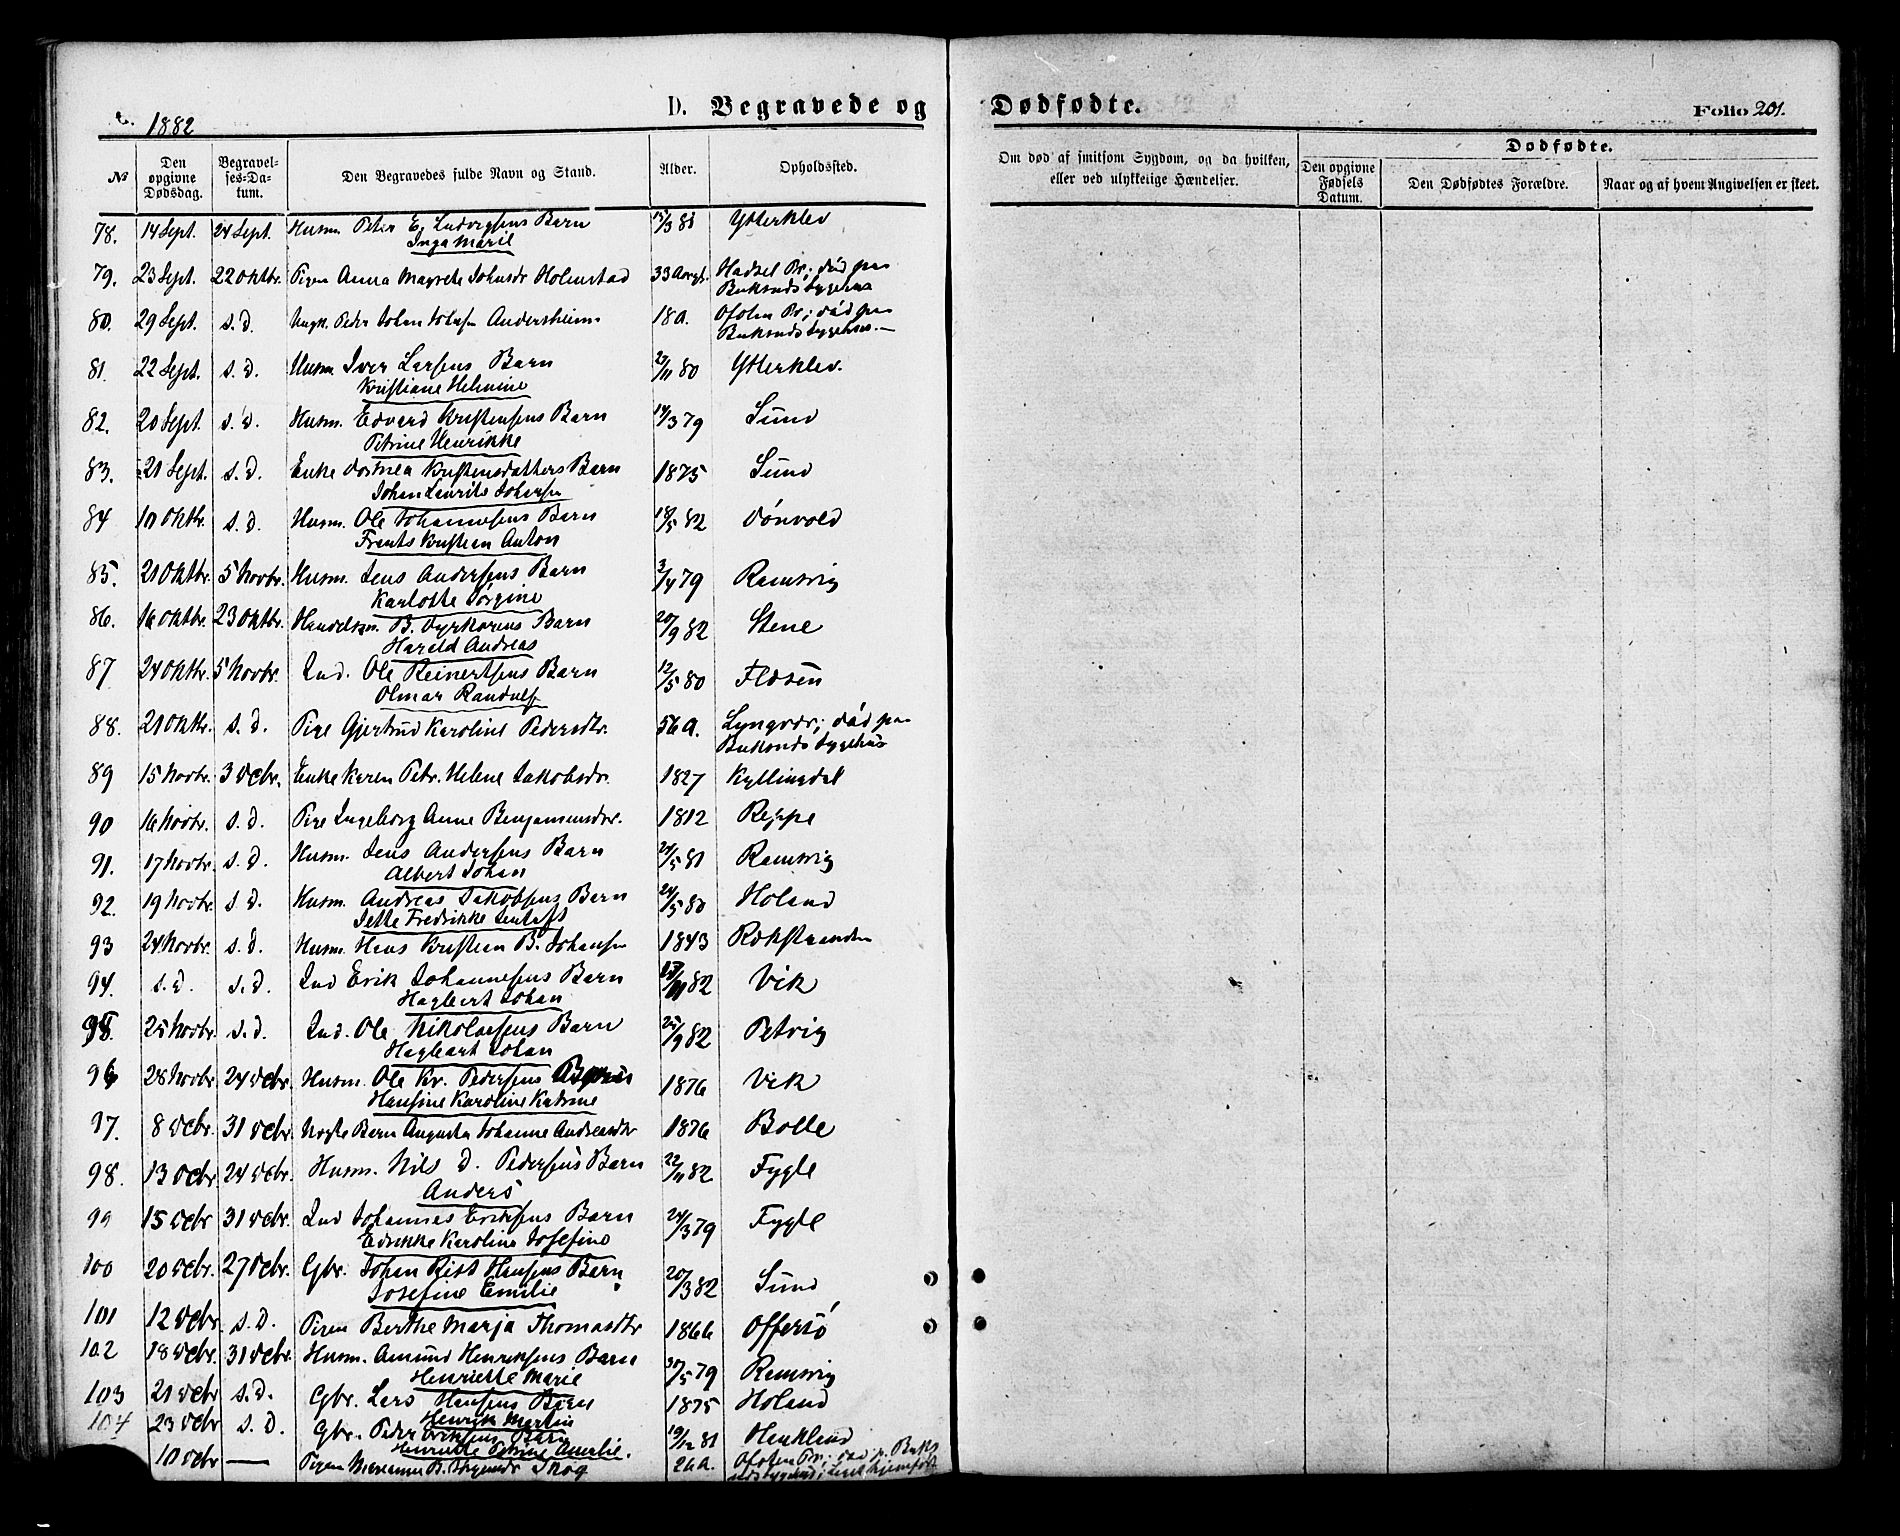 1882
D. Begravede og Dødfødte.
Folio 201.
№
Den opgivne Dødsdag.
Begravelses-Datum.
Den Begravedes fulde Navn og Stand.
Alder.
Opholdssted.
Om død af smitsom Sygdom, og da hvilken, eller ved ulykkelige Hændelser.
Dødfødte.
Den opgivne Fødsels Datum.
Den Dødfødtes Forældre.
Naar og af hvem Angivelsen er skeet.
78. 14 Sept. 24 Sept. Husm. Peter E. Ludvigsens Barn 8/3 Ytterklev
Inga Marie
79. 23 Sept. 22 Oktbr. Pigen Anna Magrethe Johnsdr Holmstad 33 Hadsel Pr; død paa
Buksnds Sygehus
80. 29 Sept. s. d. Ungk. Peder Johan Johnsen 18 A. Ofoten Pr; død paa
Buksnds Sygehus.
81. 22 Sept. s. d. Husm. Iver Larsens Barn /11 80 Ytterklev.
Kristiane Helmine
82. 20 Sept. s. d. Husm. Edvard Kristensens Barn 14/3 79 Sund
Petrine Henrikke
83. 21 Sept. s. d. Enke Kristensdatters Barn 1875 Sund
Johan Laurits Johansen
84 10 Oktbr. s. d. Husm. Ole Johannesens Barn 18/5 82 Dønvold
Frants Kristian Anton
85. 21 Oktbr. 5 Novbr. Husm. Jens Andersens Barn 3/4 79 Ramsvig
Karlotte Jørgine
86. 16 Oktbr. 23 Oktbr. Handelsm. B. Dyrkorens Barn 20/9 82 Stene
Harald Andreas
87. 24 Oktbr. 5 Novbr. Ind. Ole Reinertsens Barn 12/5 80 Flosen
Olmar Randulf
88. 21 Oktbr. s. d. Pige Gjertrud Karoline Pedersdtr. 56 A. Lyngvær; død paa
Buksnds Sygehus
89 15 Novbr. 3 Dcbr. Enke Karen Petr. Helene Jakobsdr. 1827 Kyllingdal
90 16 Novbr. s. d. Pige Ingeborg Anne Benjaminsdr. 1812 Reppe
91. 17 Novbr. s. d. Husm. Jens Andersens Barn 21/5 81 Ramsvig
Albert Johan
92. 19 Novbr. s. d. Husm. Andreas Jakobsens Barn 24/5 80 Holand
Jette Fredrikke
93 24 Novbr. s. d. Husm. Hans Kristian B. Johansen 1843 Rokstranden
94. s. d. s. d. Ind Erik Johannesens Barn /11 82 Vik
Hagbart Johan
95. 25 Novbr s. d. Ind. Ole Nikolaisens Barn 25/9 82 Petvig
Hagbart Johan
96 28 Novbr 24 Dcbr. Husm. Ole Kr. Pedersens Barn 1876 Vik
Hansine Karoline Katrine
97. 8 Dcbr. 31 Dcbr. Barn Augusta Johanne Andreasdtr 1876 Bolle
98. 13 Dcbr 24 Dcbr. Husm. Nils D. Pedersens Barn 22/11 82 Fygle
Anders
99 15 Dcbr 31 Dcbr. Ind Johannes Eriksens Barn 24/3 79 Fygle
Edrikke Karoline Josefine
100 20 Dcbr. 27 Dcbr. Gbr. Johan Rist Hansens Barn 20/3 82 Sund
Josefine Emilie
101 12 Dcbr s. d. Pigen Berthe Marja Thomasdtr 1866 Offersø
102 18 Dcbr. 31 Dcbr. Husm. Amund Henriksens Barn /5 79 Ramsvig
Henriette Marie
103 21 Dcbr s. d. Gbr. Lars Hansens Barn 1875 Holand
Henrik Martin
104 23 Dcbr s. d. Gbr. Peder Eriksens Barn 19/12 81 Haukland
Henriette Petrine Amalie.
10 Dcbr — Pigen Marianna B. Skog 26 A. Ofoten Pr; død p. Buks